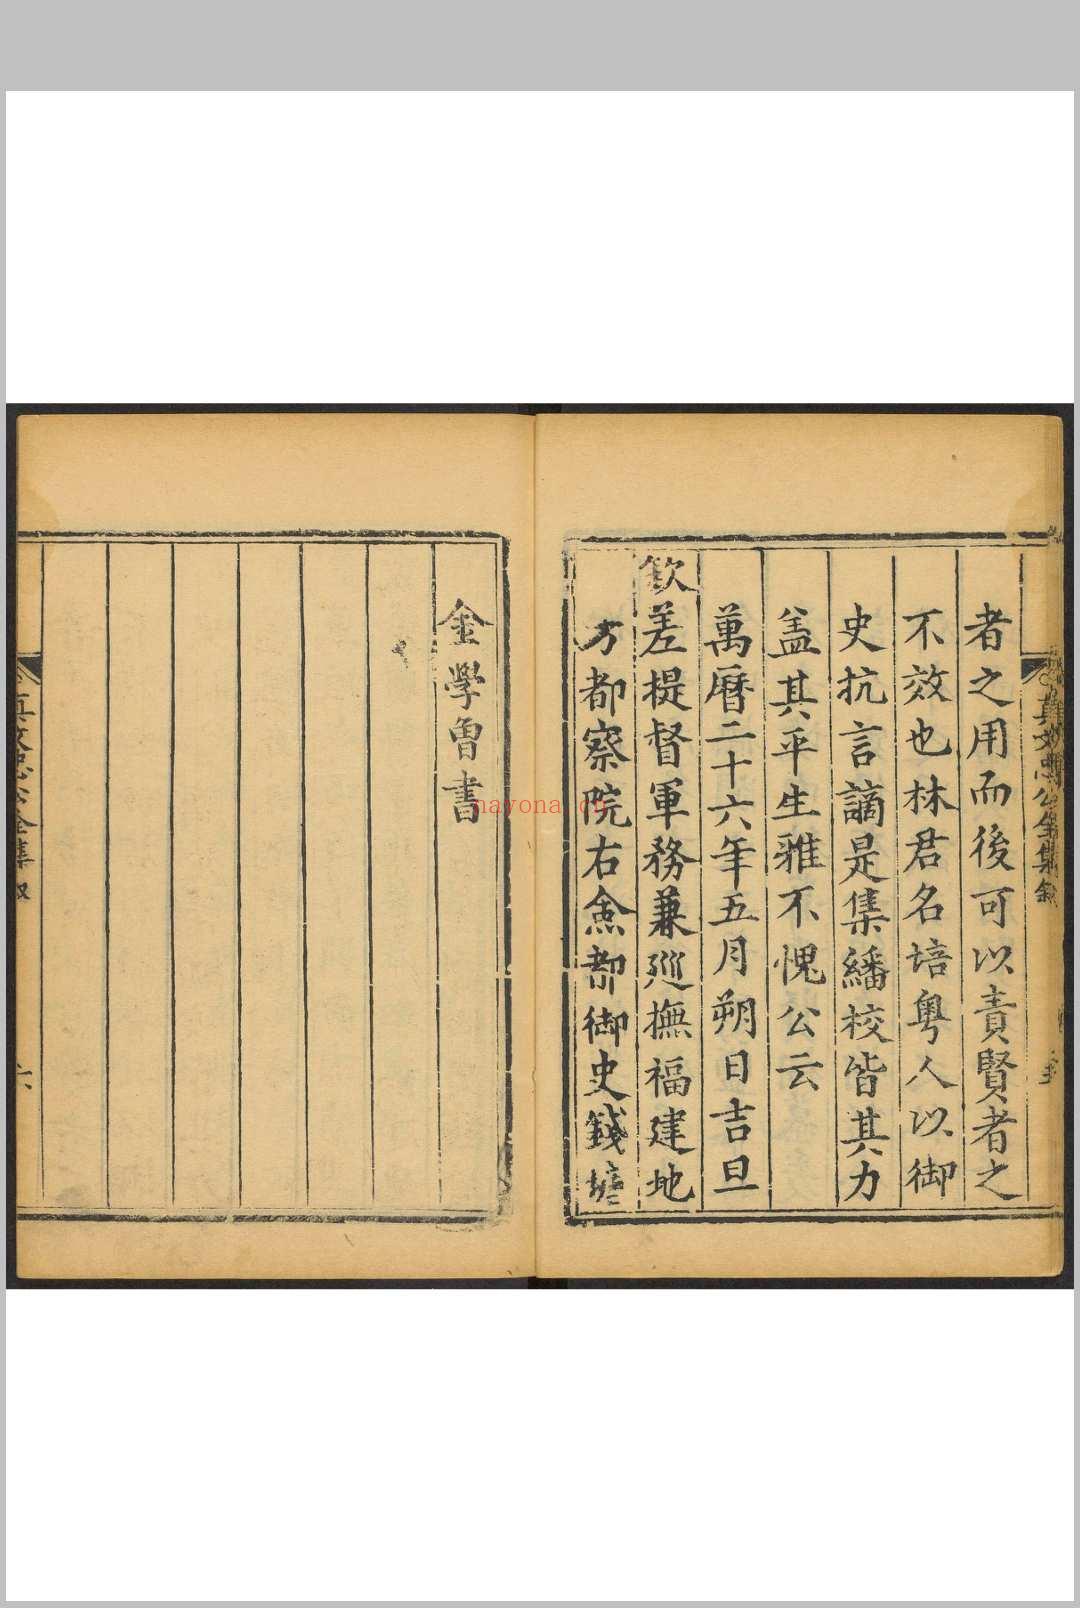 者之用而後可以責賢者之
不效也林君名培粤人以御
史抗言謫是集繙校皆其力
盖其平生雅不愧公云
萬曆二十六年五月朔日吉旦
欽差提督軍務兼廵撫福建地
方都察院右僉都御史錢塘
金學曾書
真文忠公全集敘
六
nayona.cn